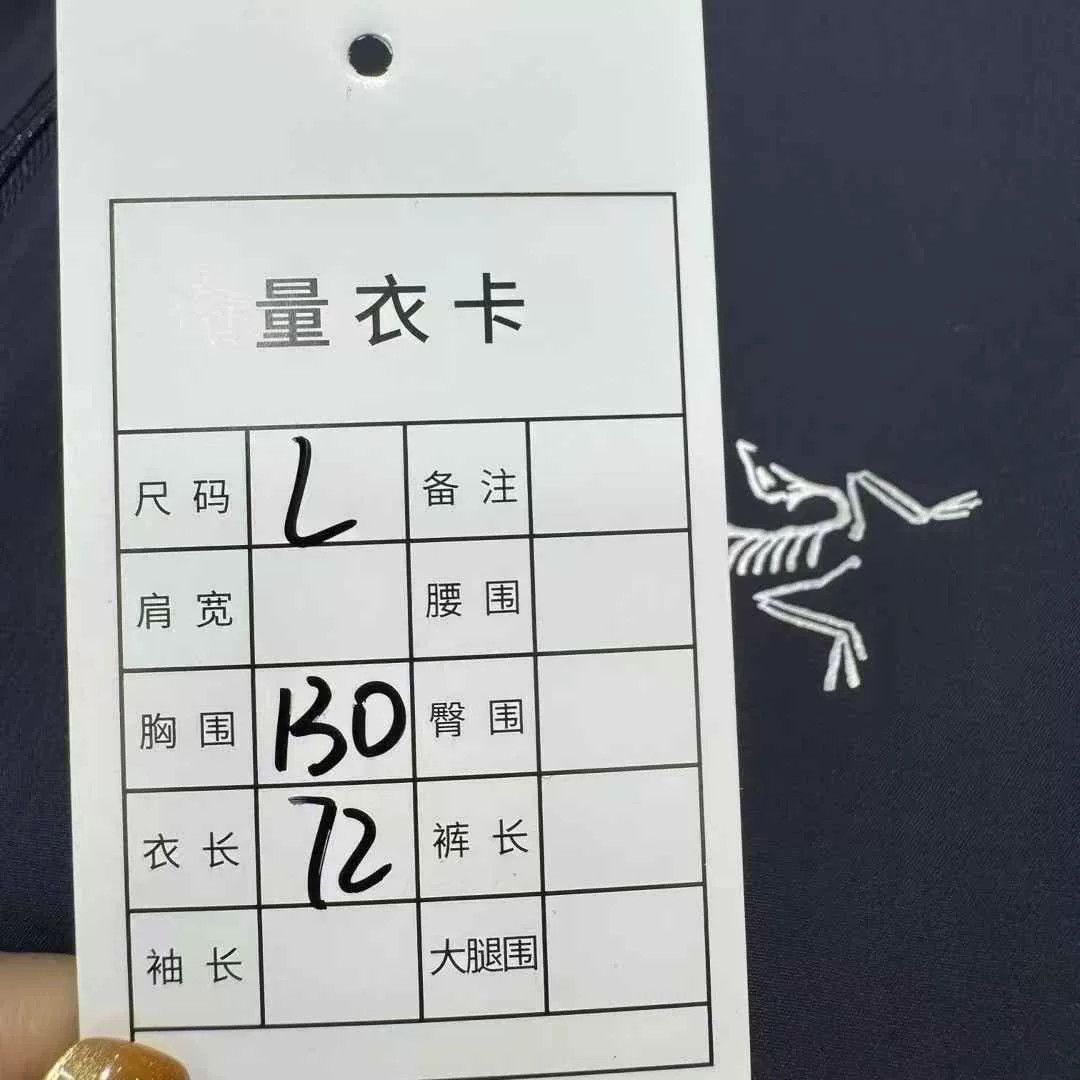 量衣卡
尺码 L 备注
肩宽 腰围
胸围 130 臀围
衣长 72 裤长
袖长 大腿围